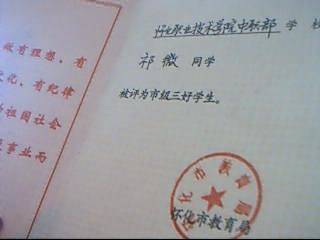 做有理想，有
文化，有纪律
祖国社会
事业而
怀化职业技术学院中职部 学 校
祁薇 同学
被评为市级三好学生。
怀化市教育局
怀化市教育局